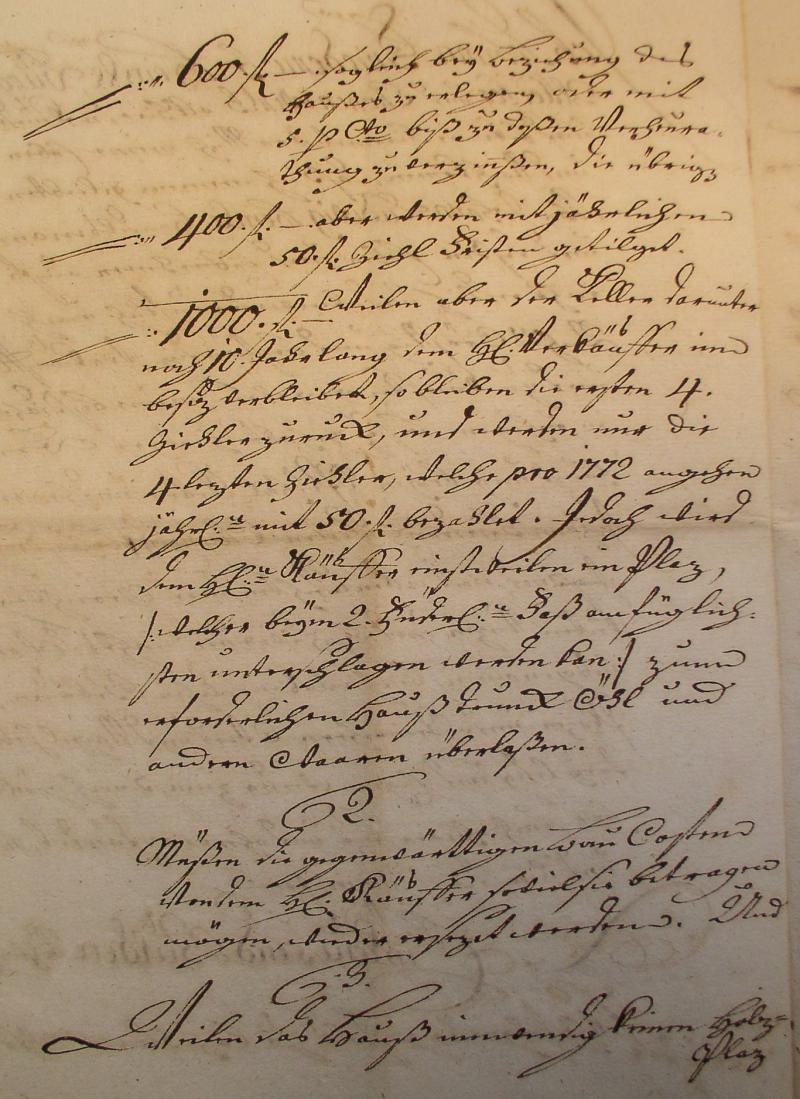 600. fl. — sogleich bey beziehung des
Haußes zu erlegen, oder mit
5. p Cto biß zu dessen Verheura-
thung zu verzinßen, die übrige
400. fl. — aber werden mit jährlichen
50. fl. Ziehl Fristen getilget.
1000. fl. — Weilen aber der Keller darunter
noch 10. Jahr lang dem H. Verkäuffer im
besiz verbleibet, so bleiben die ersten 4.
Ziehler zuruck, und werden nur die
4 lezten Ziehler, welche pro 1772 angehen
jährl. mit 50. fl. bezahlet. Jedoch wird
dem H. Käuffer einstweilen ein Plaz,
/: welcher beym 2. Fuderl. Faß am füglich-
sten unterschlagen werden kan :/ zum
erforderlichen Haußtrunck Öhl und
andern Waaren überlaßen.
2.
Müßen die gegenwärttigen bau Costen
von dem H. Käuffer soviel sie betragen
mögen, wieder ersezet werden. Und
3.
Weilen das Hauß innwendig keinen Holz-
Plaz